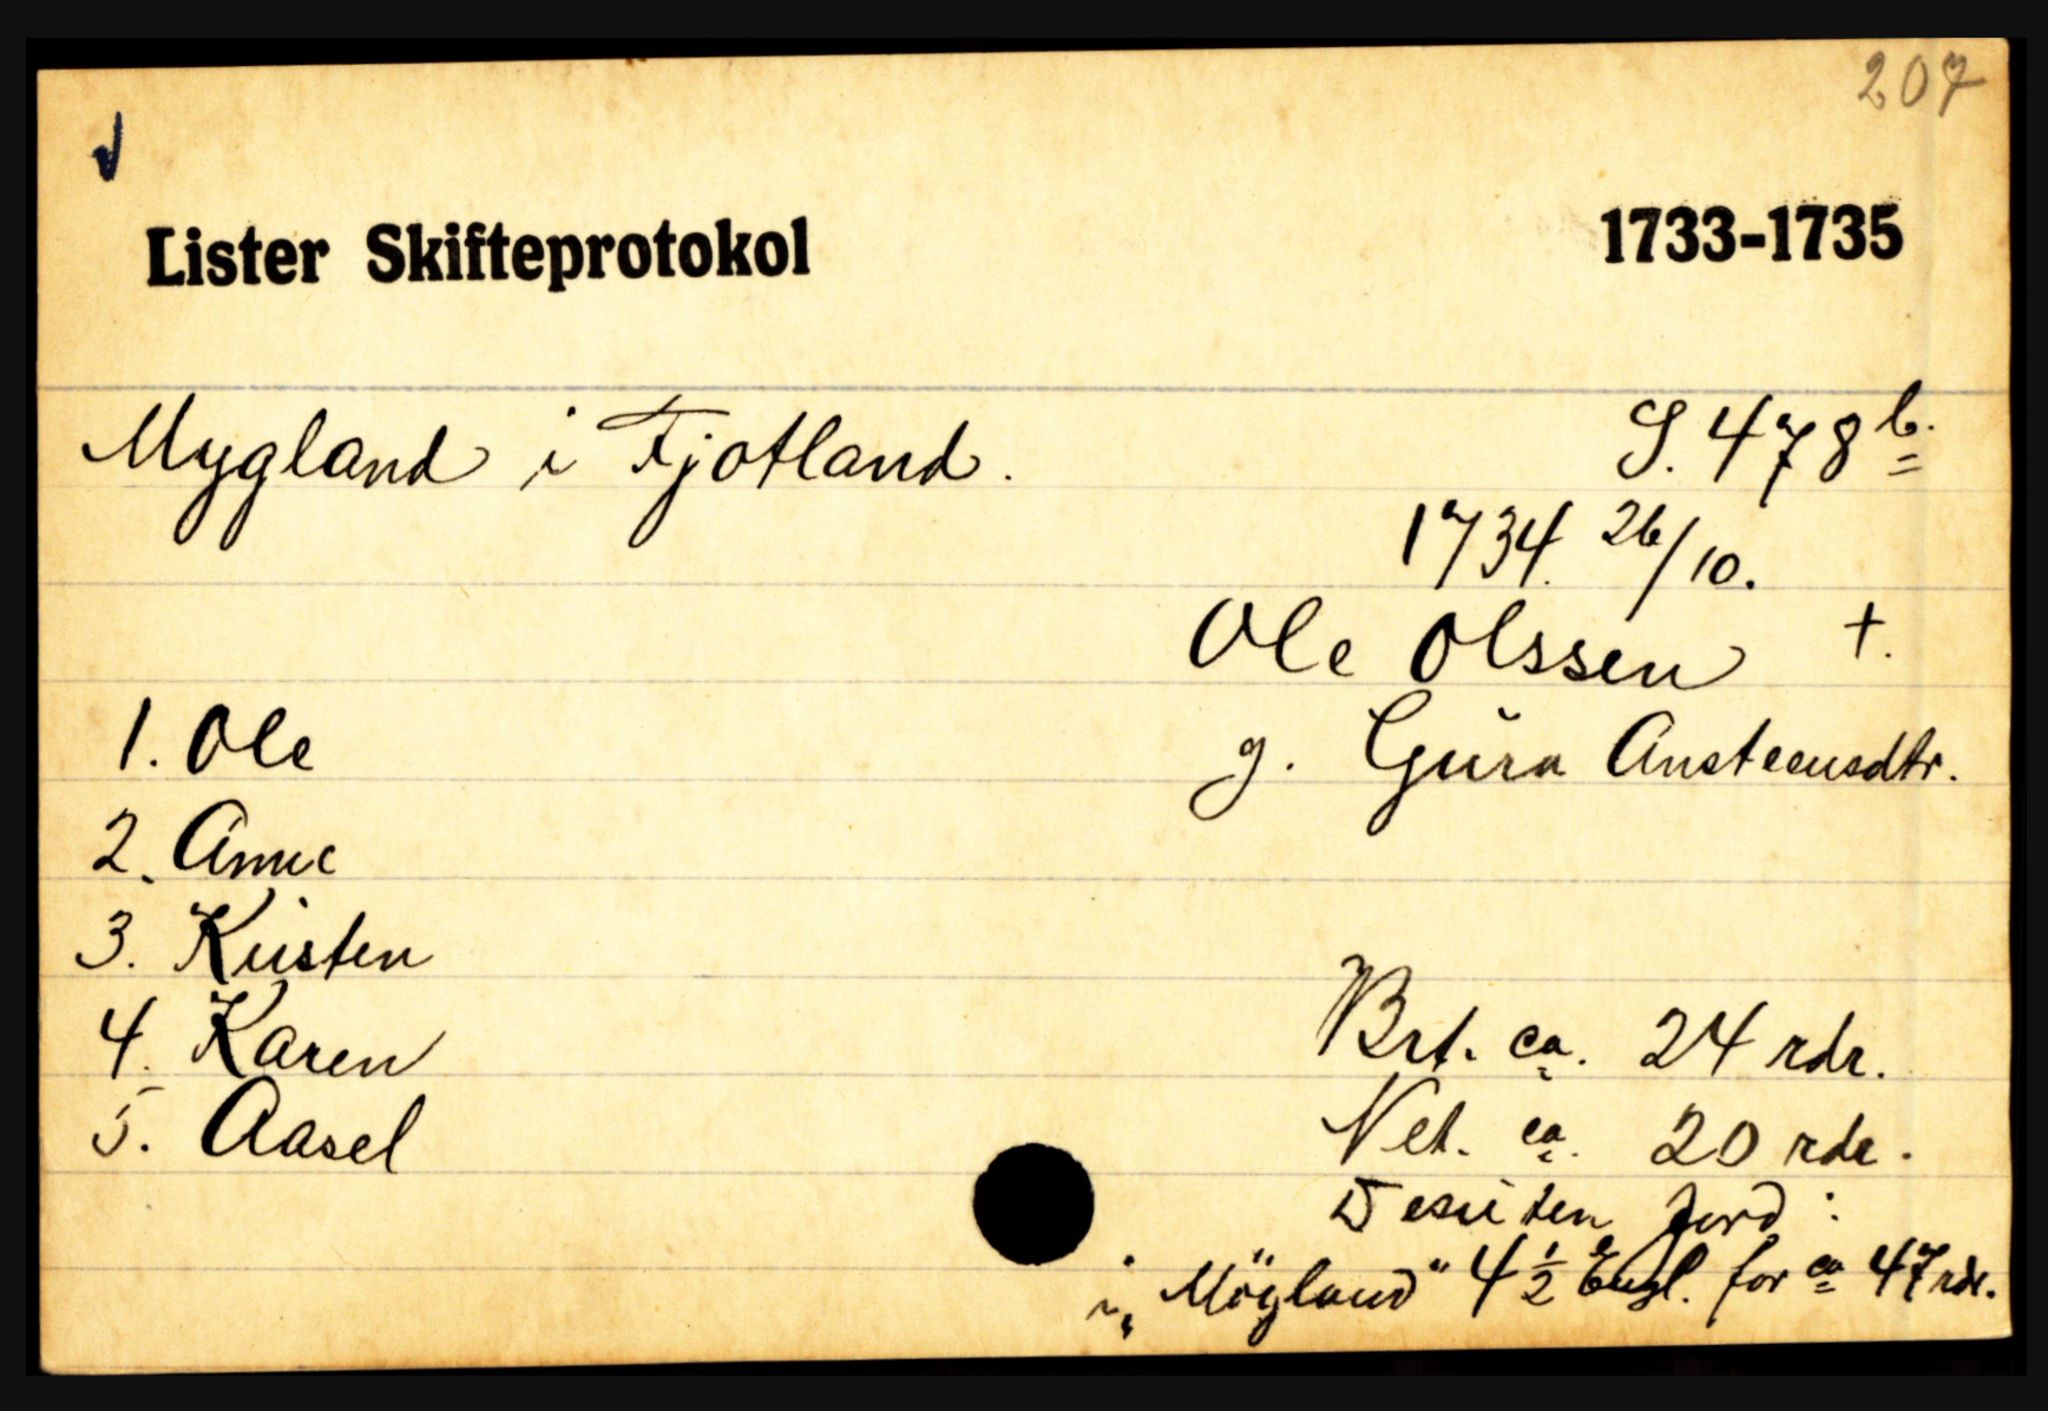 207
Lister Skifteprotokol 1733-1735
Mygland i Fjotland. S. 478 b.
1734. 26/10.
Ole Olssen +.
1. Ole g. Gura Ansteensdtr.
2. Anne
3. Kirsten
4. Karen Brt. ca. 24 rdr.
5. Aasel Net. ca. 20 rdr.
Desuten Jord:
i „Mögland" 4 1/2 Engl. for ca 47 rdr.